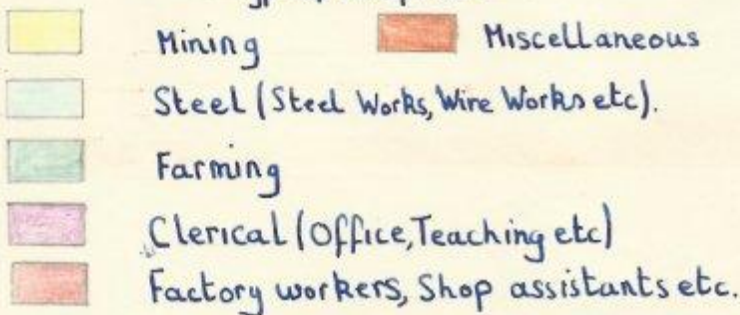 Mining Miscellaneous
Steel (Steel Works, Wire Works etc).
Farming
Clerical (Office, Teaching etc)
Factory workers, Shop assistants etc.